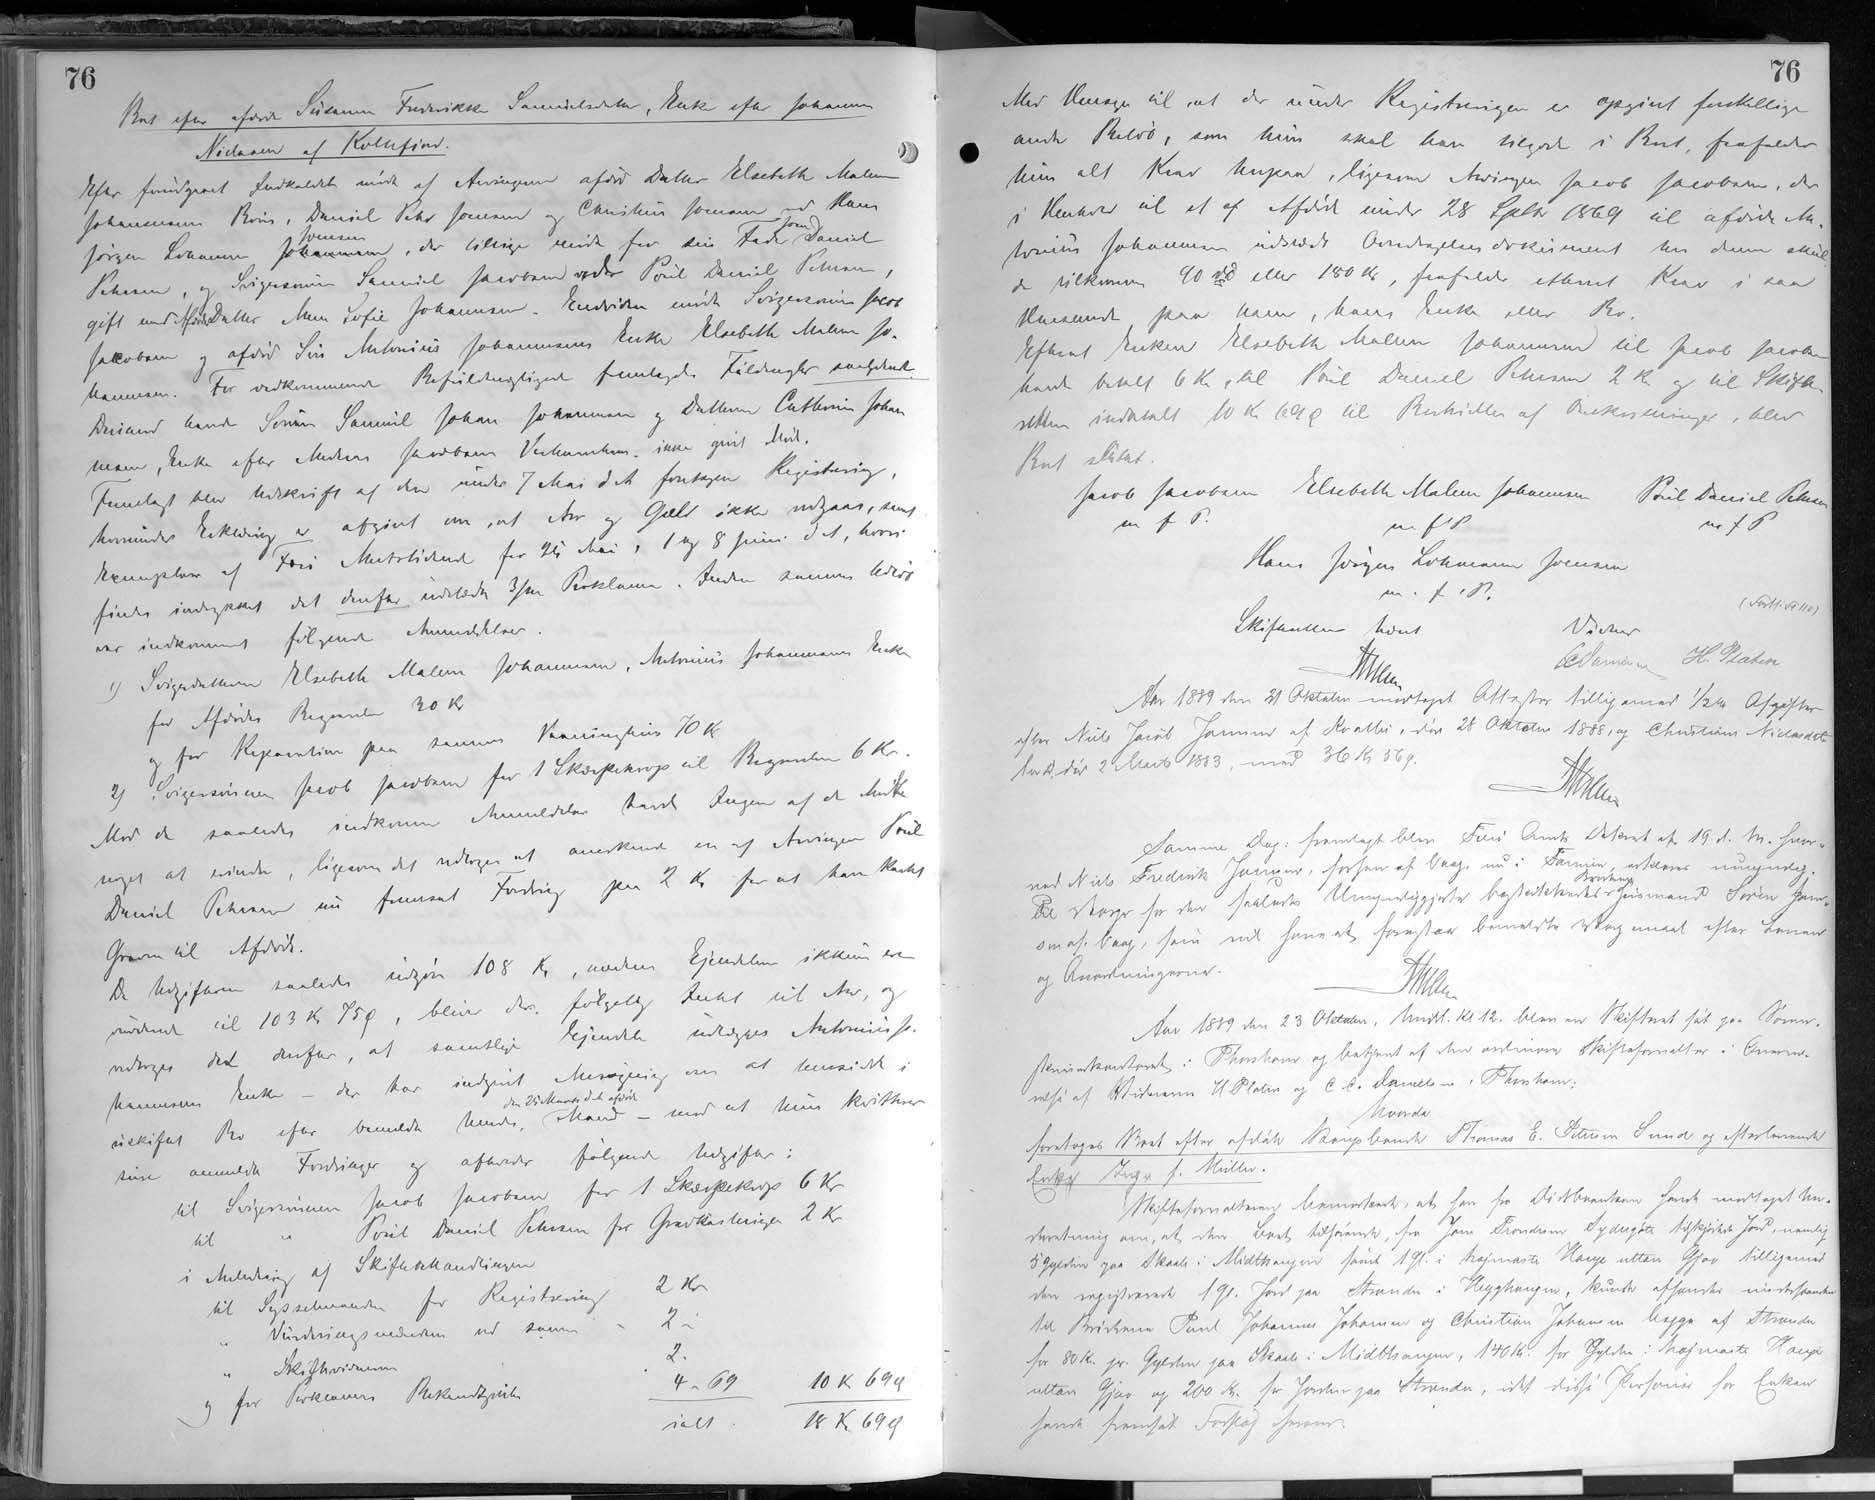 76
Boet efter afdøde Susanna Frederikke Samuelsdatter, Enke efter Johannes
Niclasen af Kollefjord.
Efter forudgaaet Indkaldelse mødte af Arvingerne afdød Datter Elsebeth Malene
Johannesens Børn, Daniel Peter Joensen og Christine Joensen ved Hans
Jørgen Lohmann Joensen, der tillige mødte for sin Fader Daniel
Petersen, og Svigersønnen Samuel Jacobsen ved Poul Daniel Petersen,
gift med Afdødes Datter Anna Sofie Johannesen. Endvidere mødte Svigersønnen Jacob
Jacobsen og afdød Søn Antonius Johannesens Enke Elsebeth Malene Jo-
hannesen. For vedkommende Befuldmægtigede fremlagdes Fuldmagter
Derimod havde Sønnen Samuel Johan Johannesen og Datteren Cathrine Johan
nesen, Enke efter Jacobsen Vestmanhavn ikke givet Møde.
Fremlagt blev Udskrift af den under 7 Mai d. A. foretagne Registrering,
hvorunder Erklæring er afgivet om, at Arv og Gæld ikke vedgaas, samt
Exemplarer af Færø Amtstidende for 25 Mai, 1 og 8 Juni d. A., hvori
findes indrykket det derefter udstedte 3/m Proklama. Inden sammes Udløb
var indkommet følgende Anmeldelser.
1) Svigerdatteren Elsebeth Malene Johannesen, Antonius Johannesens Enke
for Afdødes Begravelse 30 Kr
og for Reparation paa sammes Vaaningshus 70 Kr
2) Svigersønnen Jacob Jacobsen for 1 Skærpekrop til Begravelsen 6 Kr.
Mod de saaledes indkomne Anmeldelser havde Ingen af de Mødte
noget at erindre, ligesom det vedtoges at anerkende en af Arvingen Poul
Daniel Petersen nu fremsat Fordring paa 2 Kr for at have kastet
Graven til Afdøde.
Da Udgifterne saaledes udgjør 108 Kr, medens Ejendelene ikkun ere
vurderede til 103 Kr 75 ø, bliver der følgelig Intet til Arv, og
vedtoges det derfor, at samtlige Ejendele udlægges Antonius Jo-
hannesens Enke – der har indgivet Ansøgning om at hensidde i
uskiftet Bo efter bemeldte hendes, den 25 Marts d. A. afdøde Mand – mod at hun kvitterer
sine anmeldte Fordringer og afholder følgende Udgifter:
til Svigersønnen Jacob Jacobsen for 1 Skærpekrop 6 Kr
til " Poul Daniel Petersen for Gravkastningen 2 Kr
i Anledning af Skiftebehandlingen
til Sysselmanden for Registrering 2 Kr
" Vurderingsmændene ved samme - 2 -
" Skiftevidnerne . 2 .
og for Proklamas Bekendtgjørelse 4 - 69 10 Kr 69 ø
ialt . 18 Kr 69 ø
76
Med Hensyn til, at der under Registreringen er opgivet forskellige
andre Beløb, som hun skal have tilgode i Boet, frafalder
hun alt Krav herpaa, ligesom Arvingen Jacob Jacobsen, der
i Henhold til et af Afdøde under 28 Septbr 1869 til afdøde An-
tonius Johannesen udstedt Overdragelsesdokument hos denne skul
de tilkomme 90 rd eller 180 Kr, frafaldt ethvert Krav i saa
Henseende paa ham, hans Enke eller Bo.
Efterat Enken Elsebeth Malene Johannesen til Jacob Jacobsen
havde betalt 6 Kr, til Poul Daniel Petersen 2 Kr og til Skifte-
retten indbetalt 10 Kr 69 ø til Bestridelse af Omkostninger, blev
Boet sluttet.
Jacob Jacobsen Elsebeth Malene Johannesen Poul Daniel Petersen
m f P. m f P m f P
Hans Jørgen Lohmann Joensen
m. f. P.
Skifteretten hævet
Vidner
H. Platen
Aar 1889 den 21 Oktober modtaget Attester tilligemed 1/2 % Afgifter
efter Niels Jacob Jensen af Kvalbø, død 28 Oktober 1888, og Christiane Niclasdatter
død 2 Marts 1883, med 36 Kr 56 ø.
Samme Dag: fremlagt blev Færø Amts Dekret af 19 d. M. hvor-
ved Niels Fredrik Jensen, forhen af Vaag, nu i Famien, erklæres umyndig.
Til Værge for den saaledes Umyndiggjorte beskikkedes Husmand Søren
af Vaag, som vil have at forestaa bemeldte Værgemaal efter Loven
og Anordningerne.
Aar 1889 den 23 Oktober, Middt. Kl 12. blev en Skifteret sat paa Soren-
skriverkontoret i Thorshavn og betjent af den ordinære Skifteforvalter i Overvæ-
relse af Vidnerne H. Platen og C. C. Danielsen, Thorshavn;
hvorda
foretoges Boet efter afdøde Kongsbonde Thomas E. Petersen Sund og efterlevende
Enke J. Müller.
Skifteforvalteren bemærkede, at han fra Distbranken havde modtaget Un-
derretning om, at den Boet tilhørende, fra Joen Trondesen Sydregøte tilskjødede Jord, nemlig
5 Gylden paa Skaale i Midthaugen samt 1 gl. i Nojmaste Hauge uttan Gjov tilligemed
den registrerede 1 gl. Jord paa Strender i Hegghaugen, kunde afhændes underhaanden
til Brødrene Poul Johannes Johansen og Christian Johansen begge af Strender
for 80 Kr. pr. Gylden paa Skaale i Midthaugen, 140 Kr. for Gylden i Nojmaste Hauge
uttan Gjov og 200 Kr. for Jorden paa Strender, idet disse Personer for Enken
havde fremsat Forslag herom.